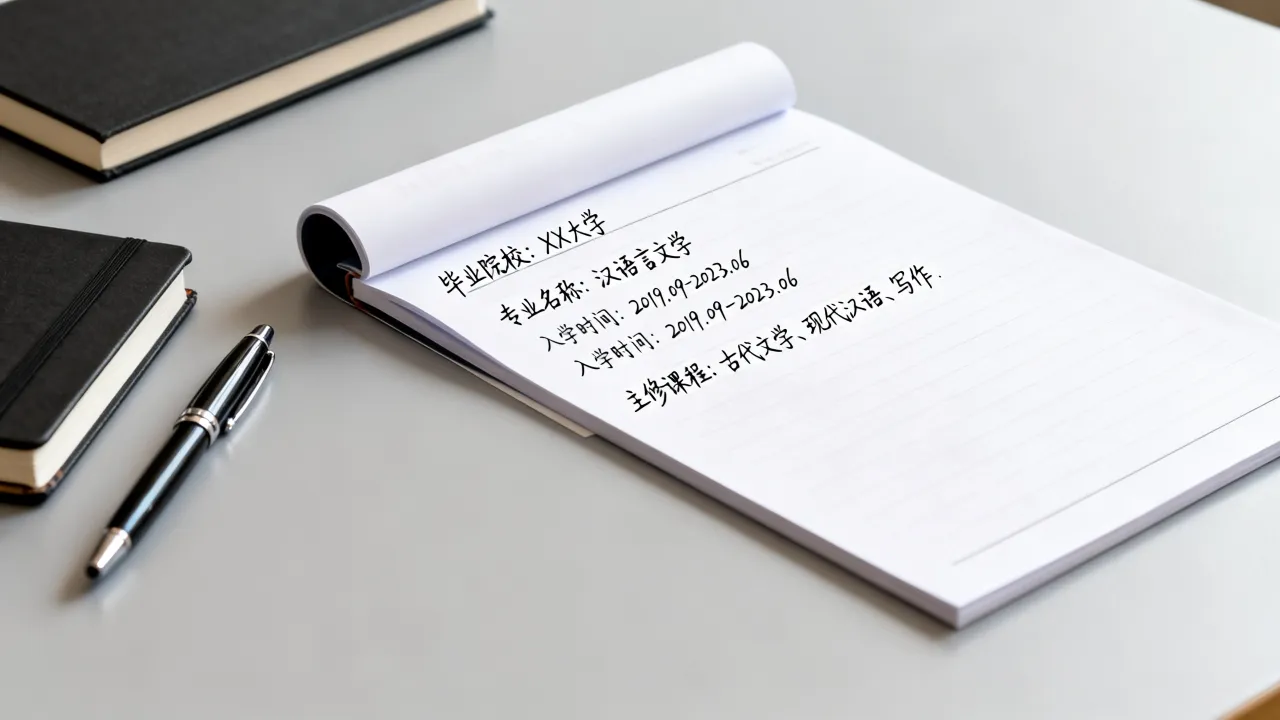 毕业院校: XX大学
专业名称: 汉语言文学
入学时间: 2019.09-2023.06
入学时间: 2019.09-2023.06
主修课程: 古代文学、现代汉语、写作.